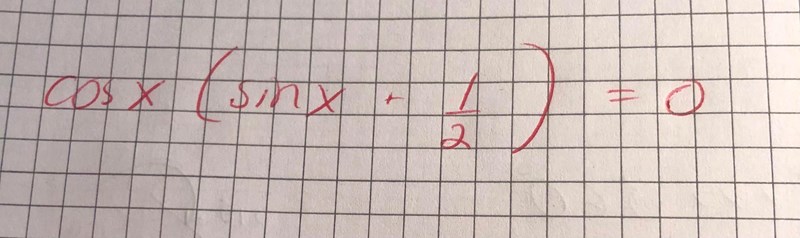 cos x (sin x + 1/2) = 0